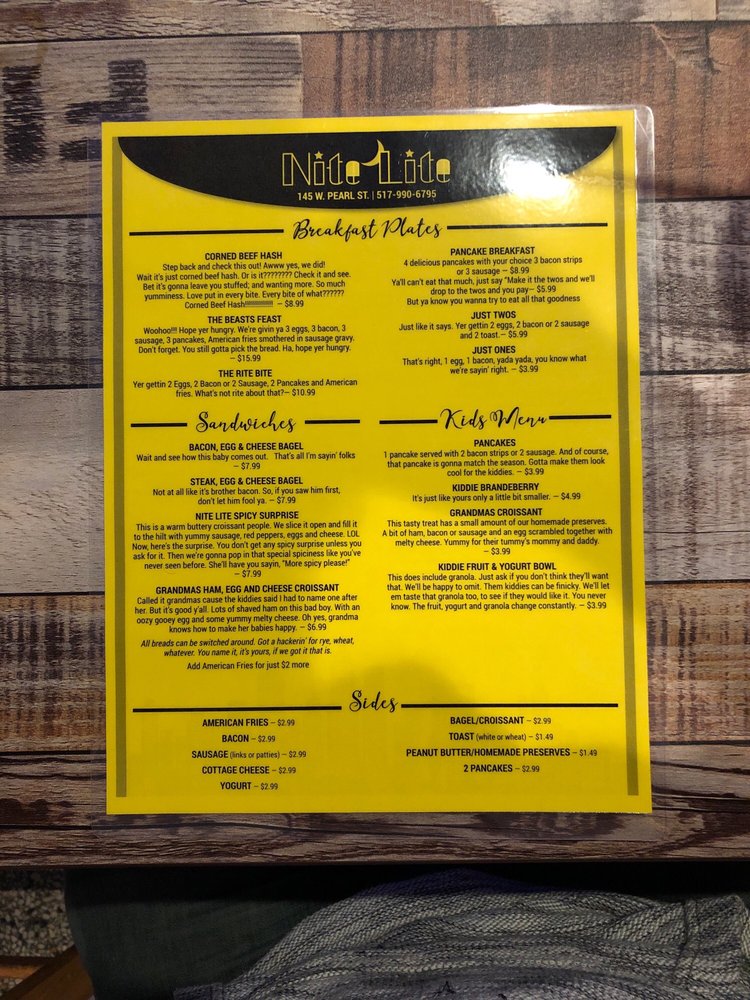 Nite Lite
145 W. PEARL ST. | 517-990-6795
Breakfast Plates
CORNED BEEF HASH
Step back and check this out! Awww yes, we did!
Wait it's just corned beef hash. Or is it???????? Check it and see.
Bet it's gonna leave you stuffed; and wanting more. So much
yumminess. Love put in every bite. Every bite of what??????
Corned Beef Hash!!!!!!!!!!!!!!! – $8.99
THE BEASTS FEAST
Woohoo!!! Hope yer hungry. We're givin ya 3 eggs, 3 bacon, 3
sausage, 3 pancakes, American fries smothered in sausage gravy.
Don't forget. You still gotta pick the bread. Ha, hope yer hungry.
– $15.99
THE RITE BITE
Yer gettin 2 Eggs, 2 Bacon or 2 Sausage, 2 Pancakes and American
fries. What's not rite about that?– $10.99
PANCAKE BREAKFAST
4 delicious pancakes with your choice 3 bacon strips
or 3 sausage – $8.99
Ya'll can't eat that much, just say "Make it the twos and we'll
drop to the twos and you pay– $5.99
But ya know you wanna try to eat all that goodness
JUST TWOS
Just like it says. Yer gettin 2 eggs, 2 bacon or 2 sausage
and 2 toast. – $5.99
JUST ONES
That's right, 1 egg, 1 bacon, yada yada, you know what
we're sayin' right. – $3.99
Sandwiches
BACON, EGG & CHEESE BAGEL
Wait and see how this baby comes out. That's all I'm sayin' folks
– $7.99
STEAK, EGG & CHEESE BAGEL
Not at all like it's brother bacon. So, if you saw him first,
don't let him fool ya. – $7.99
NITE LITE SPICY SURPRISE
This is a warm buttery croissant people. We slice it open and fill it
to the hilt with yummy sausage, red peppers, eggs and cheese. LOL
Now, here's the surprise. You don't get any spicy surprise unless you
ask for it. Then we're gonna pop in that special spiciness like you've
never seen before. She'll have you sayin, "More spicy please!"
– $7.99
GRANDMAS HAM, EGG AND CHEESE CROISSANT
Called it grandmas cause the kiddies said I had to name one after
her. But it's good y'all. Lots of shaved ham on this bad boy. With an
oozy gooey egg and some yummy melty cheese. Oh yes, grandma
knows how to make her babies happy. – $6.99
All breads can be switched around. Got a hackerin' for rye, wheat,
whatever. You name it, it's yours, if we got it that is.
Add American Fries for just $2 more
Kids Menu
PANCAKES
1 pancake served with 2 bacon strips or 2 sausage. And of course,
that pancake is gonna match the season. Gotta make them look
cool for the kiddies. – $3.99
KIDDIE BRANDEBERRY
It's just like yours only a little bit smaller. – $4.99
GRANDMAS CROISSANT
This tasty treat has a small amount of our homemade preserves.
A bit of ham, bacon or sausage and an egg scrambled together with
melty cheese. Yummy for their tummy's mommy and daddy.
– $3.99
KIDDIE FRUIT & YOGURT BOWL
This does include granola. Just ask if you don't think they'll want
that. We'll be happy to omit. Them kiddies can be finicky. We'll let
em taste that granola too, to see if they would like it. You never
know. The fruit, yogurt and granola change constantly. – $3.99
Sides
AMERICAN FRIES – $2.99
BACON – $2.99
SAUSAGE (links or patties) – $2.99
COTTAGE CHEESE – $2.99
YOGURT – $2.99
BAGEL/CROISSANT – $2.99
TOAST (white or wheat) – $1.49
PEANUT BUTTER/HOMEMADE PRESERVES – $1.49
2 PANCAKES – $2.99